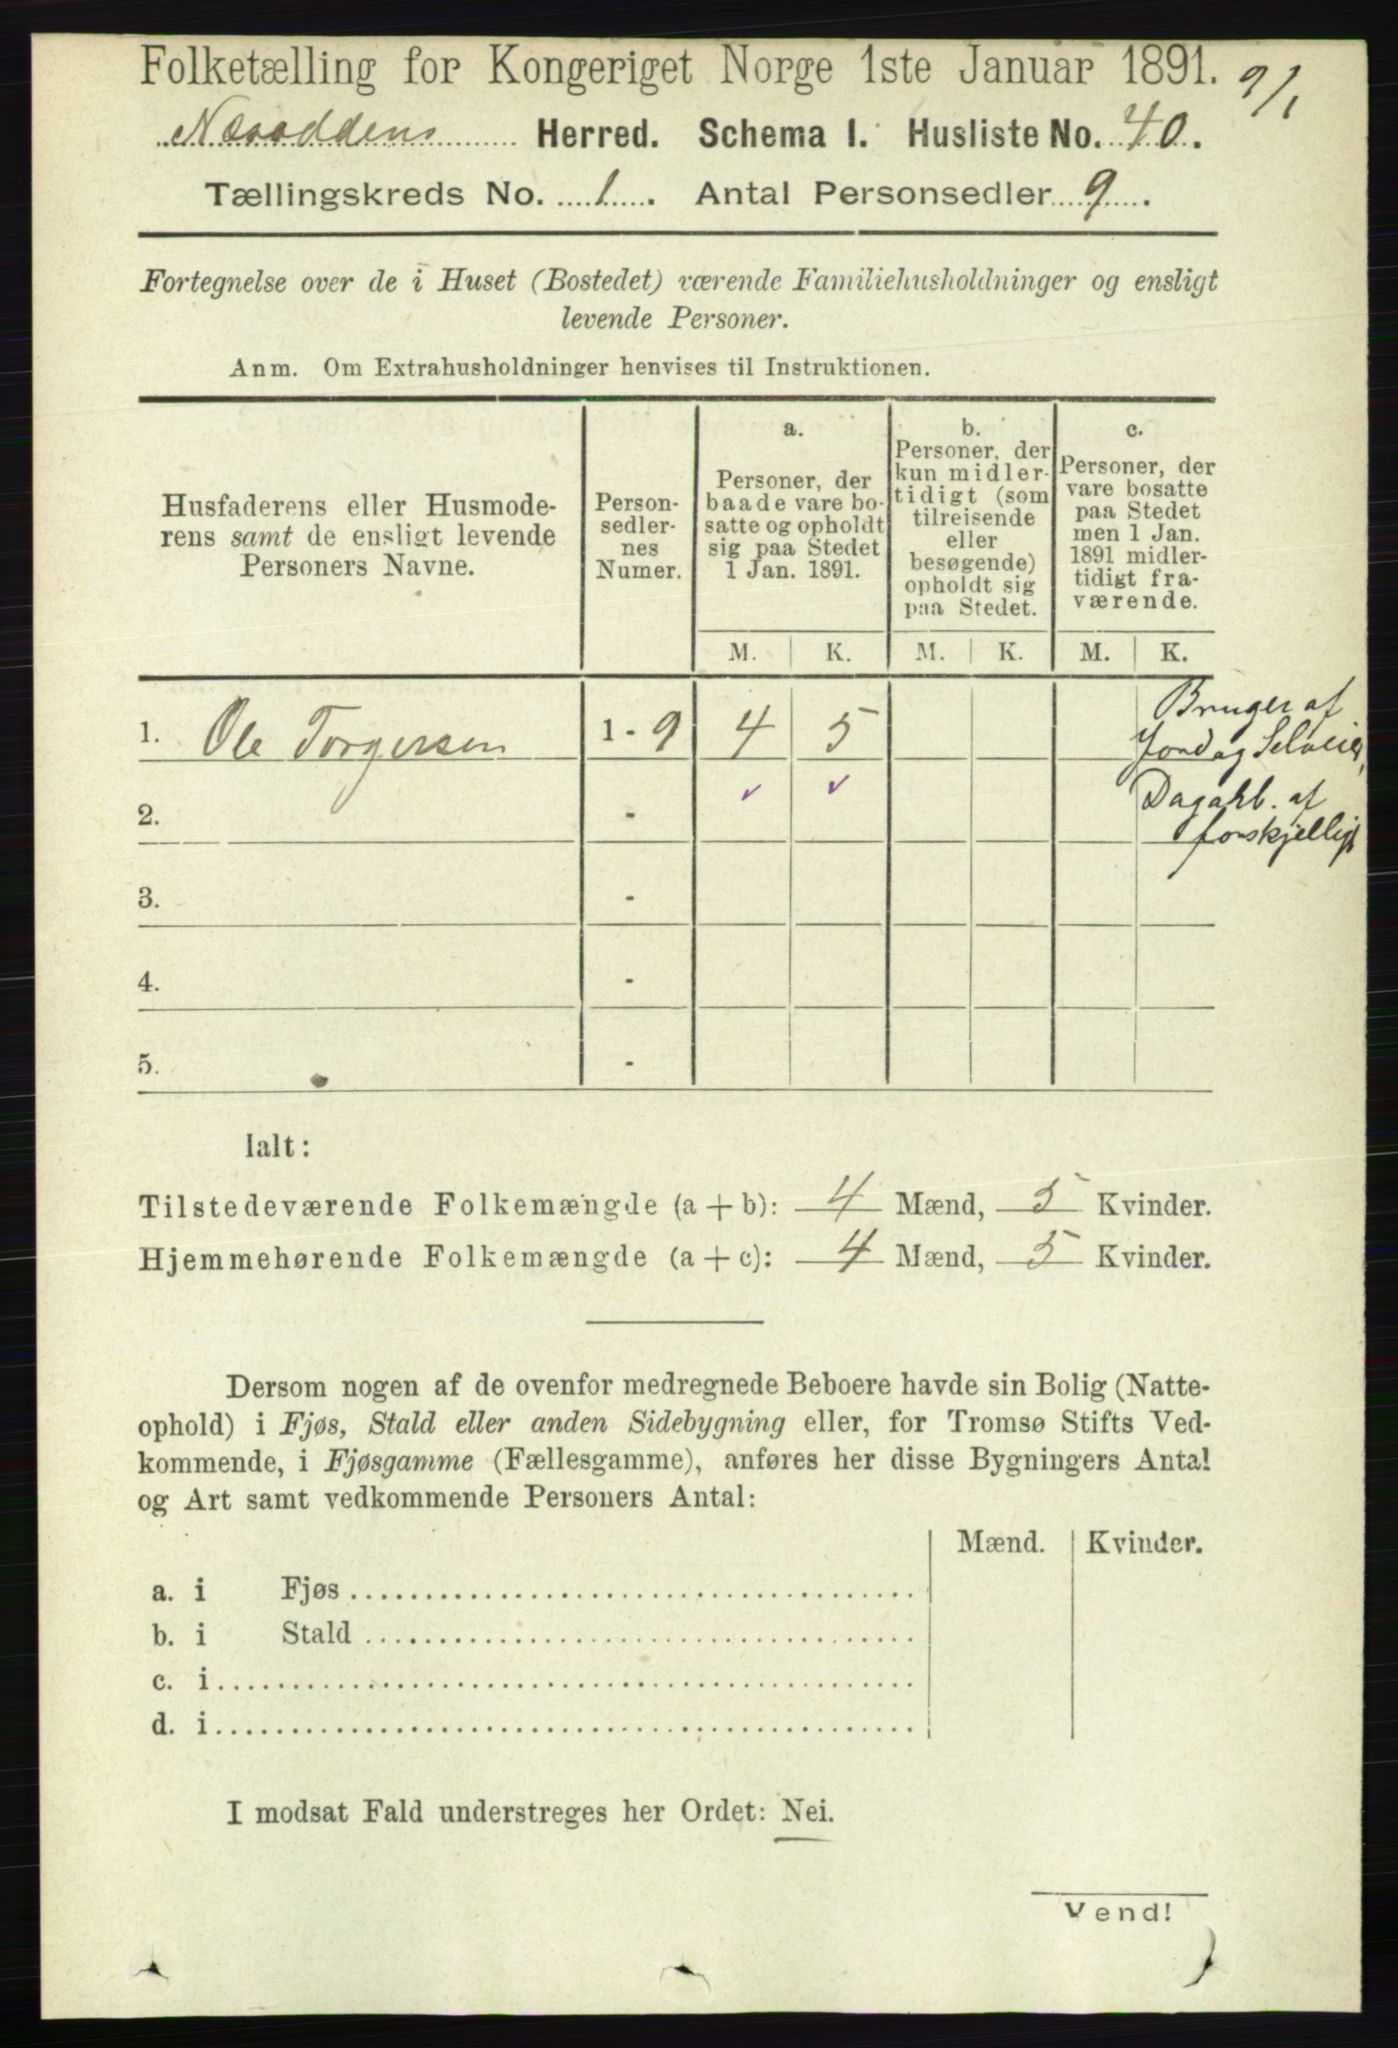 Folketælling for Kongeriget Norge 1ste Januar 1891.
9/1
Næsoddens Herred. Schema I. Husliste No. 40.
Tællingskreds No. 1. Antal Personsedler 9.
Fortegnelse over de i Huset (Bostedet) værende Familiehusholdninger og ensligt
levende Personer.
Anm. Om Extrahusholdninger henvises til Instruktionen.
Husfaderens eller Husmode-
rens samt de ensligt levende
Personers Navne.
Person-
sedler-
nes
Numer.
a.
Personer, der
baade vare bo-
satte og opholdt
sig paa Stedet
1 Jan. 1891.
b.
Personer, der
kun midler-
tidigt (som
tilreisende
eller
besøgende)
opholdt sig
paa Stedet.
c.
Personer, der
vare bosatte
paa Stedet
men 1 Jan.
1891 midler-
tidigt fra-
værende.
M. K. M. K. M. K.
1. Ole Torgersen 1 - 9 4 5
Bruger af
Jord og Selveier,
Dagarb. af
forskjellig
2. -
3. -
4. -
5. -
Ialt:
Tilstedeværende Folkemængde (a + b): 4 Mænd, 5 Kvinder.
Hjemmehørende Folkemængde (a + c): 4 Mænd, 5 Kvinder.
Dersom nogen af de ovenfor medregnede Beboere havde sin Bolig (Natte-
ophold) i Fjøs, Stald eller anden Sidebygning eller, for Tromsø Stifts Ved-
kommende, i Fjøsgamme (Fællesgamme), anføres her disse Bygningers Antal
og Art samt vedkommende Personers Antal:
Mænd. Kvinder.
a. i Fjøs
b. i Stald
c. i
d. i
I modsat Fald understreges her Ordet: Nei.
Vend!